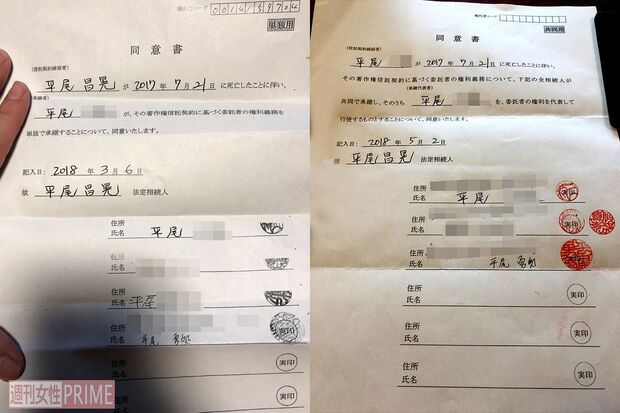 権利コード 0016159704
単独用
同意書
(信託契約締結者)
平尾昌晃 が 2017 年 7 月 21 日に死亡したことに伴い、
(承継者)
平尾 が、その著作権信託契約に基づく委託者の権利義務を
単独で承継することについて、同意いたします。
記入日: 2018 年 3 月 6 日
故 平尾昌晃 法定相続人
住所
氏名 平尾
住所
氏名
住所
氏名 平尾
住所
氏名 平尾勇気 実印
住所
氏名 実印
住所
氏名 実印
週刊女性PRIME
権利者コード
共同用
同意書
(信託契約締結者)
平尾 が 2017 年 7 月 21 日に死亡したことに伴い、
その著作権信託契約に基づく委託者の権利義務について、下記の全相続人が
(承継代表者)
共同で承継し、そのうち 平尾 を、委託者の権利を代表して
行使するものとすることについて、同意いたします。
記入日: 2018 年 5 月 2 日
故 平尾昌晃 法定相続人
住所
氏名 平尾 実印
住所
氏名 実印
住所
氏名 平尾勇気 実印
住所
氏名 実印
住所
氏名 実印
住所
氏名 実印